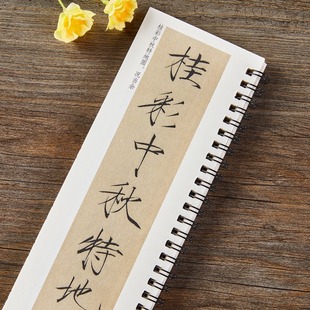 桂彩中秋特地
桂彩中秋特地圆。况当余